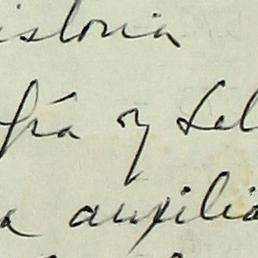 istoria
fía y Fil
a auxilia